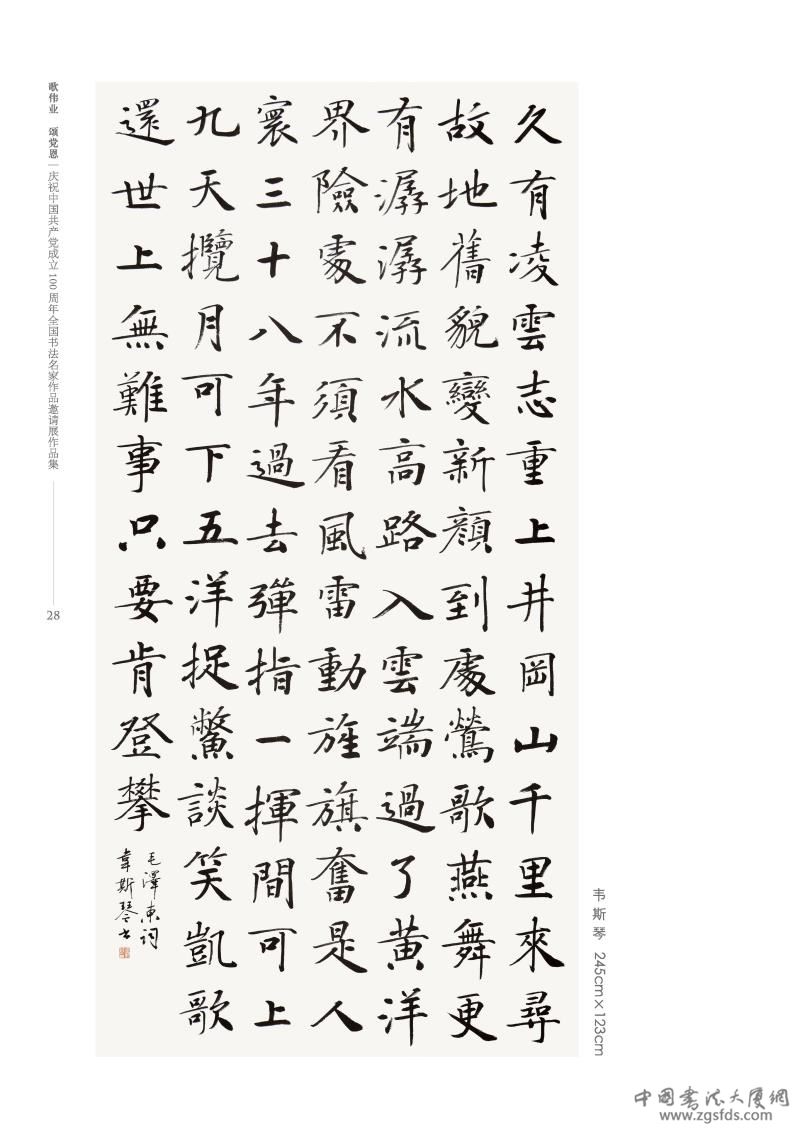 久有凌雲志重上井岡山千里來尋
故地舊貌變新顔到處鶯歌燕舞更
有潺潺流水高路入雲端過了黃洋
界險處不須看風雷動旌旗奮是人
寰三十八年過去彈指一揮間可上
九天攬月可下五洋捉鱉談笑凱歌
還世上無難事只要肯登攀
毛澤東詞
韋斯琴书
韦斯琴 245cm×123cm
歌伟业 颂党恩 | 庆祝中国共产党成立100周年全国书法名家作品邀请展作品集
28
中国书法大厦網
www.zgsfds.com